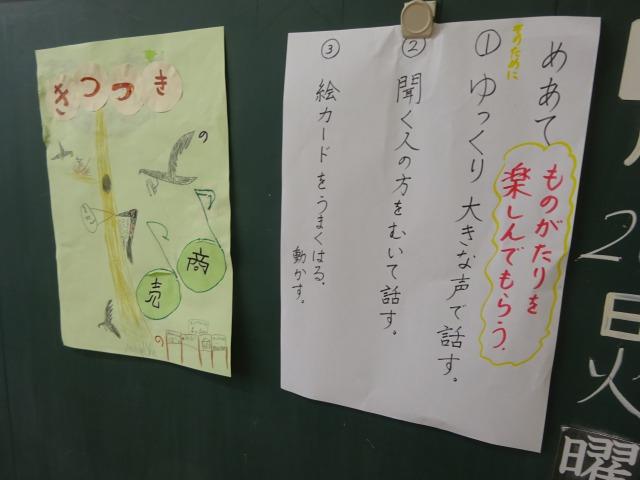 めあて
ものがたりを
楽しんでもらう.
そのために
① ゆっくり 大きな声で話す。
② 聞く人の方をむいて話す。
③ 絵カードをうまくはる.
動かす。
きつつき
の
商
売
の
日
火
曜